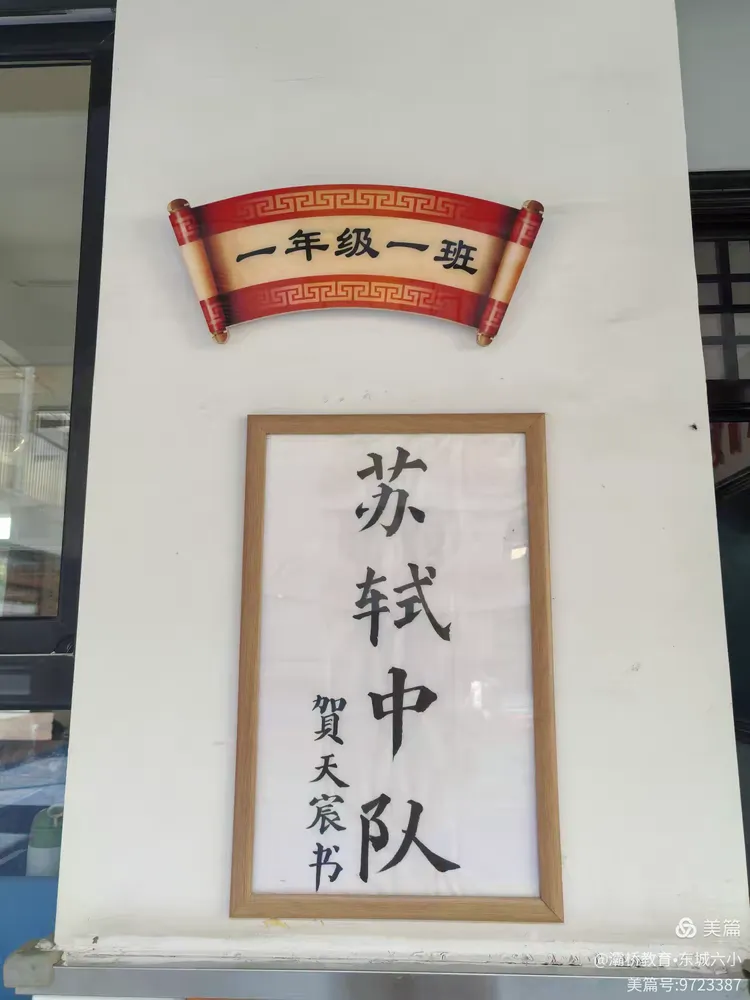 一年级一班
苏轼中队
賀天宸书
美篇
@灞桥教育•东城六小
美篇号:9723387